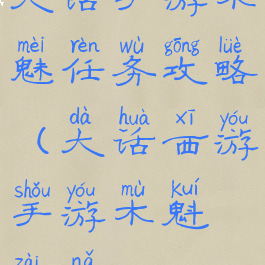 mèi rèn wù gōng lüè
魅任务攻略
dà huà xī yóu
（大话西游
shǒu yóu mù kuí
手游木魁
zài nǎ